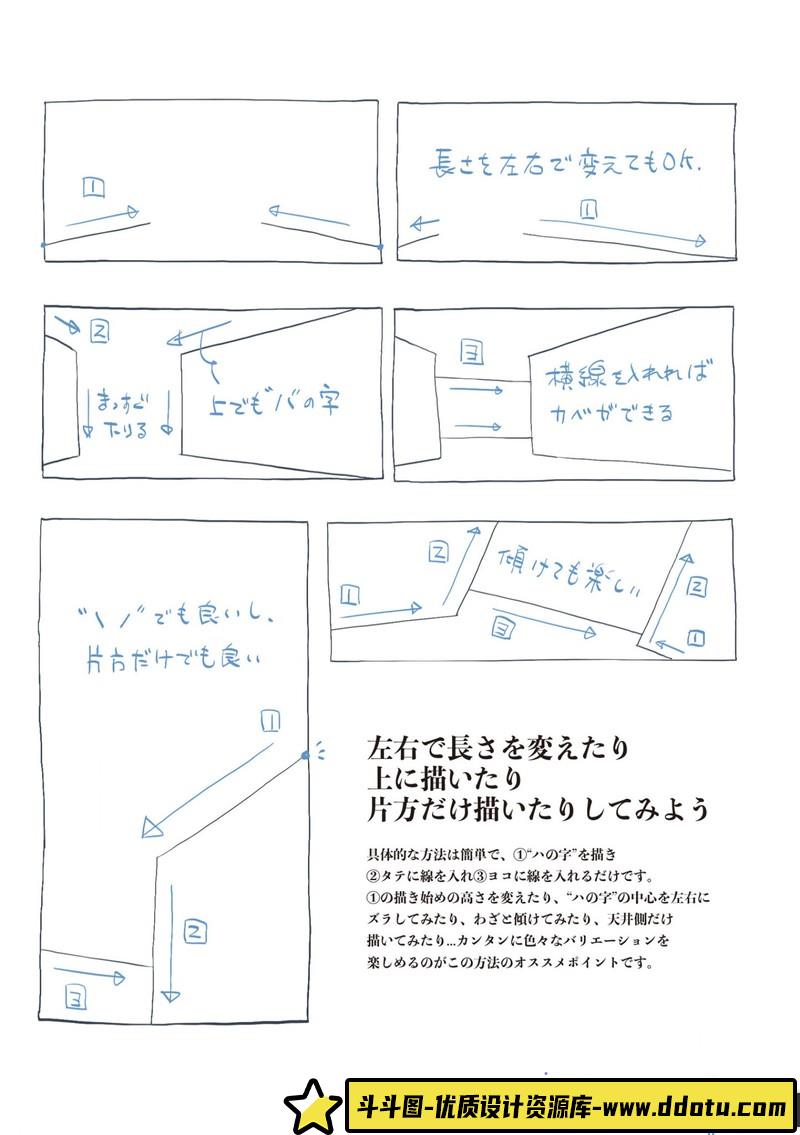 1
長さを左右で変えてもOK.
1
2
まっすぐ
下りる
上でも"ハ"の字
3
横線を入れれば
カベができる
"\ /"でも良いし、
片方だけでも良い
1
2
3
1
2
傾けても楽しい
3
2
1
左右で長さを変えたり
上に描いたり
片方だけ描いたりしてみよう
具体的な方法は簡単で、①“ハの字”を描き
②タテに線を入れ③ヨコに線を入れるだけです。
①の描き始めの高さを変えたり、“ハの字”の中心を左右に
ズラしてみたり、わざと傾けてみたり、天井側だけ
描いてみたり...カンタンに色々なバリエーションを
楽しめるのがこの方法のオススメポイントです。
斗斗图-优质设计资源库-www.ddotu.com